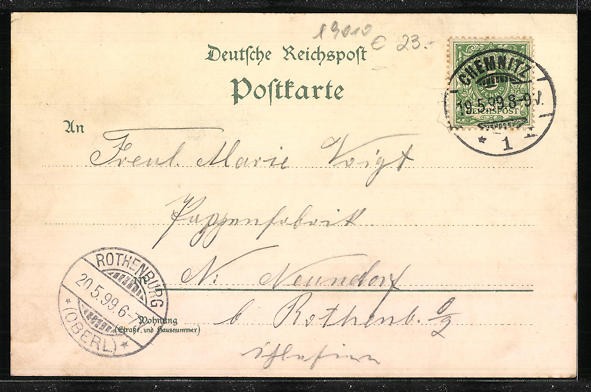 13010
€ 23.-
Deutsche Reichspost
Postkarte
CHEMNITZ
19.5.99.8-9V.
* 1
REICHSPOST
An
Freul. Marie Voigt
Pappenfabrik
N. Neundorf
b Rothenb. O/L
Schlesien
ROTHENBURG
20.5.99.6-7
*(OBERL.)*
Wohnung
(Straße und Hausnummer)